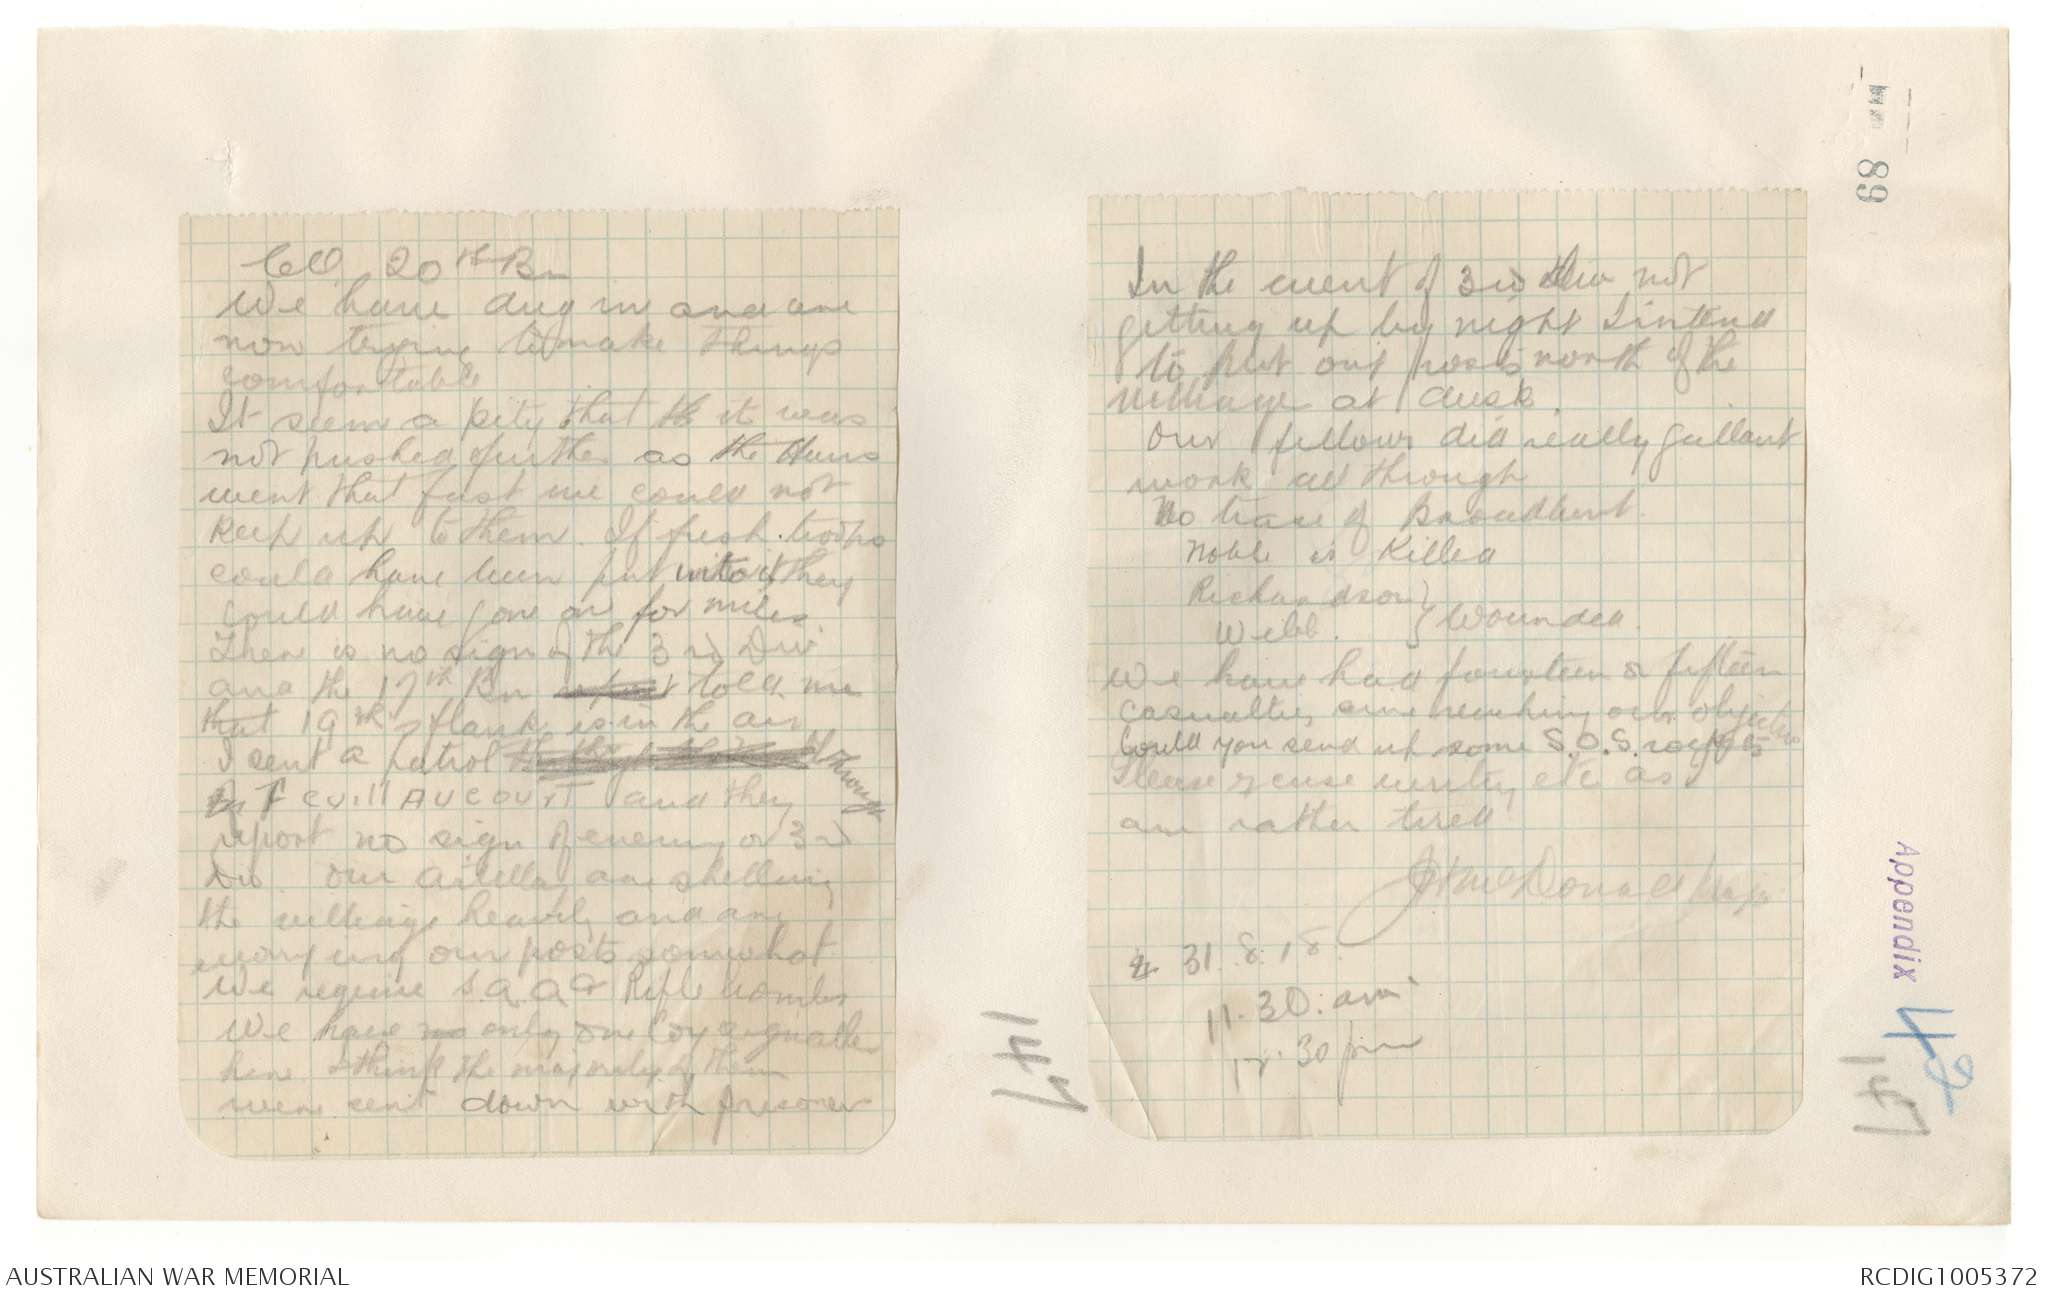 CO. 20th Bn
We have dug in and are
now trying to make things
comfortable
It seems a pity that th it was
not pushed further as the Huns
went that fast we could not
keep up to them. If fresh troops
could have been put into it they
could have gone on for miles
There is no sign of the 3rd Div
and the 17th Bn told me
that 19th's flank is in the air
I sent a patrol through
Feuillaucourt and they
report no sign of enemy or 3rd
Div. Our artillery are shelling
the village heavily and are
worrying our posts somewhat
We require S.A.A. & Rifle bombs
We have no only one Coy signaller
here I think the majority of them
were sent down with prisoners
In the event of 3rd Div not
getting up by night I intend
to put out posts north of the
village at dusk.
Our fellows did really gallant
work all through
No trace of Broadbent.
Noble is Killed
Richardson }
Webb. } Wounded.
We have had fourteen or fifteen
casualties since reaching our objective
Could you send up some S.O.S. rockets
Please excuse writing etc as I
am rather tired
McDonald Major
31.8.18.
11.30. am
12.30 pm
89
Appendix 42
147
147
AUSTRALIAN WAR MEMORIAL
RCDIG1005372